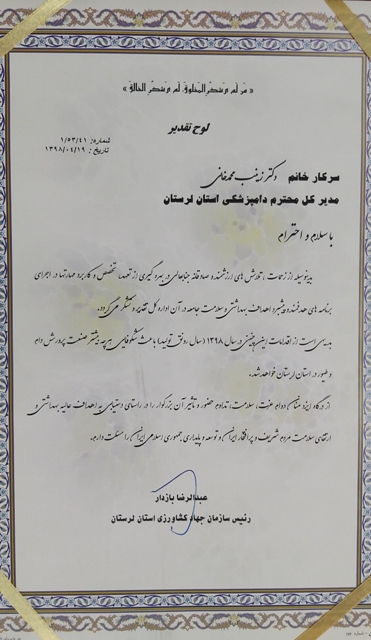 « من لم یشکر المخلوق لم یشکر الخالق »
لوح تقدیر
شماره: ۱/۵۳/۴۱
تاریخ: ۱۳۹۸/۰۴/۱۹
سرکار خانم دکتر زینب محمدخانی
مدیر کل محترم دامپزشکی استان لرستان
با سلام و احترام
بدینوسیله از زحمات، تلاش های ارزشمند و صادقانه جنابعالی در بهره گیری از تعهد، تخصص و کاربرد مهارتها در اجرای
برنامه های هدفمند و پیشبرد اهداف بهداشتی و سلامت جامعه در آن اداره کل تقدیر و تشکر می گردد.
بدیهی است از اقدامات اینچنینی در سال ۱۳۹۸ (سال رونق تولید) باعث شکوفایی هر چه بیشتر صنعت پرورش دام
و طیور در استان لرستان خواهد شد.
از درگاه ایزد منان دوام عزت، سلامت، تداوم حضور و تاثیر آن بزرگوار را در راستای دستیابی به اهداف عالیه بهداشتی و
ارتقای سلامت مردم شریف و پر افتخار ایران و توسعه و پایداری جمهوری اسلامی ایران را مسئلت دارم.
عبدالرضا بازدار
رئیس سازمان جهاد کشاورزی استان لرستان